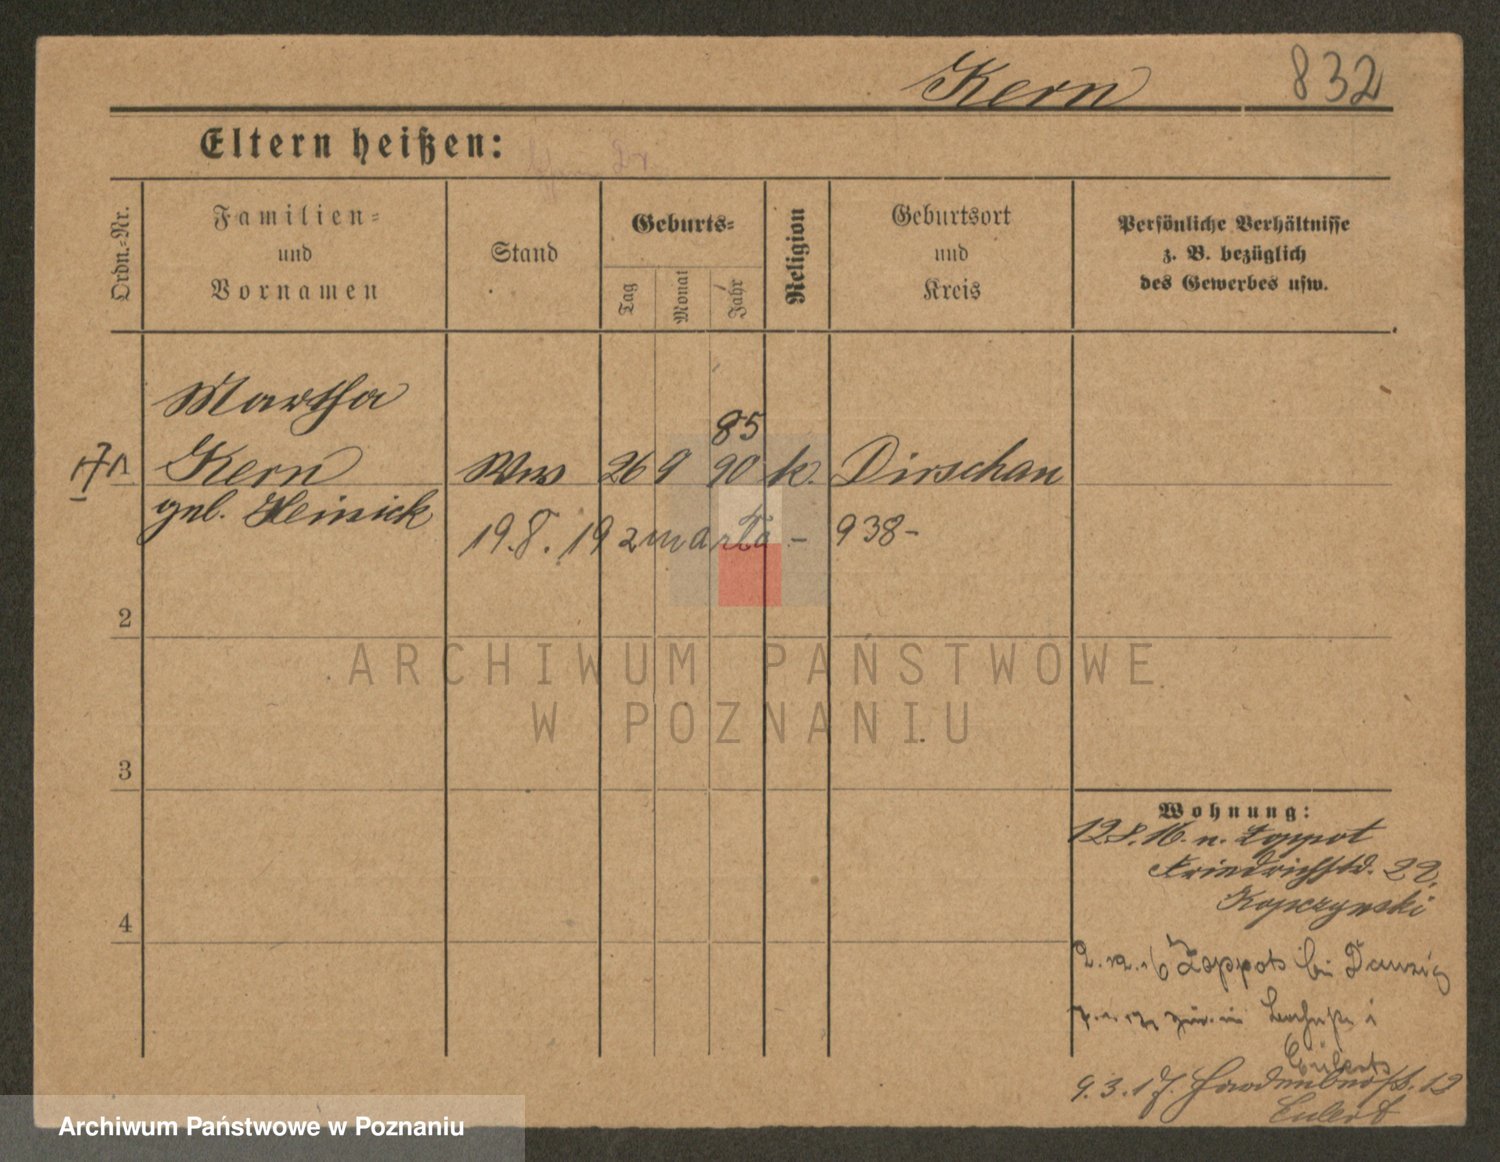 Kern
832
Eltern heißen:
Ordn.-Nr.
Familien-
und
Vornamen
Stand
Geburts-
Tag
Monat
Jahr
Religion
Geburtsort
und
Kreis
Persönliche Verhältnisse
z. B. bezüglich
des Gewerbes usw.
Martha
85
Kern Ww 26 9 90 k. Dirschau
geb. Heinick
19.8.19 zmarła - 938-
2
3
4
Wohnung:
12.8.16. n. Zoppot
Friedrichstr. 22,
Kopczynski
2.12.16 Zoppot bei Danzig
zur. in
9.3.17. 12
Eulert
ARCHIWUM PAŃSTWOWE
W POZNANIU
Archiwum Państwowe w Poznaniu